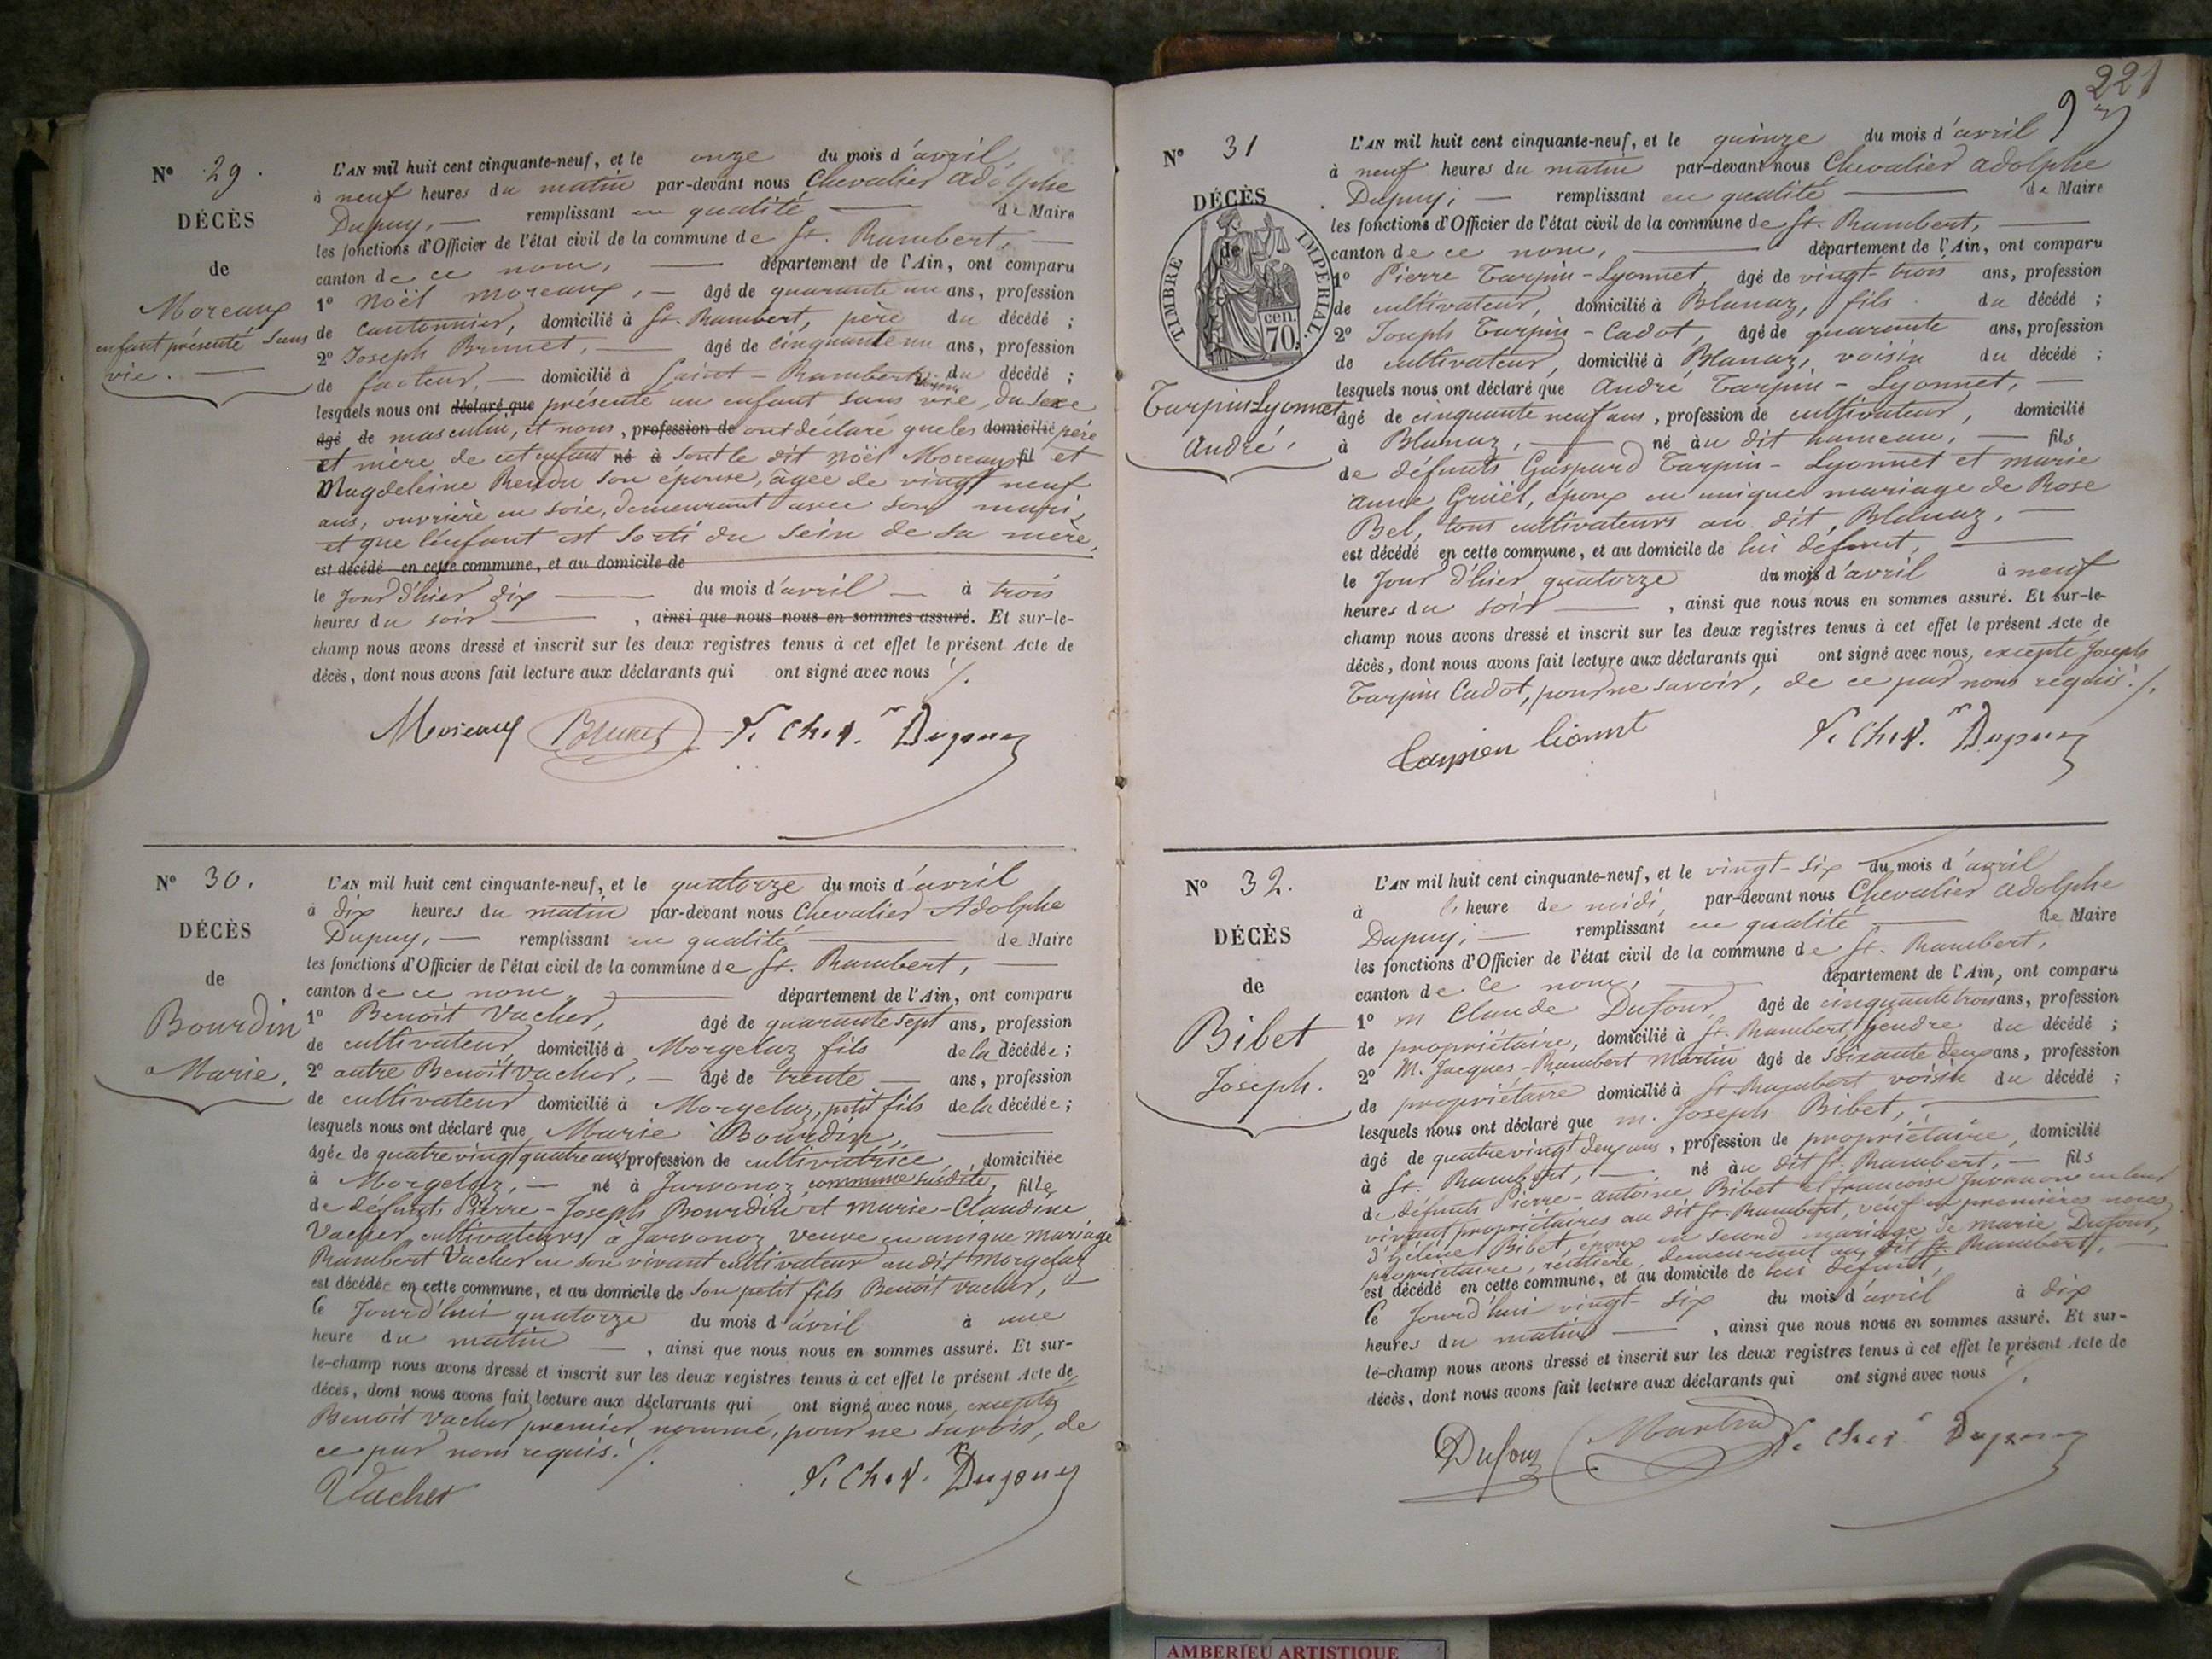 N° 29.
DÉCÈS
de
Moreaux
enfant présenté sans
vie.
L'AN mil huit cent cinquante-neuf, et le onze du mois d'avril,
à neuf heures du matin par-devant nous Chevalier Adolphe
Dupuy, remplissant en qualité de Maire
les fonctions d'Officier de l'état civil de la commune de St. Rambert,
canton de ce nom, département de l'Ain, ont comparu
1° Noël Moreaux, âgé de quarante un ans, profession
de cantonnier, domicilié à St. Rambert, père du décédé ;
2° Joseph Brunet, âgé de cinquante un ans, profession
de facteur, domicilié à Saint-Rambert voisin du décédé ;
lesquels nous ont déclaré que présenté un enfant sans vie, du sexe
âgé de masculin, et nous, profession de ont déclaré que les domicilié père
et mère de cet enfant né à sont le dit Noël Moreaux fil et
Magdeleine Rendu son épouse, âgée de vingt neuf
ans, ouvrière en soie, demeurant avec son mari,
et que l'enfant est sorti du sein de sa mère,
est décédé en cette commune, et au domicile de
le jour d'hier dix du mois d'avril à trois
heures du soir, ainsi que nous nous en sommes assuré. Et sur-le-
champ nous avons dressé et inscrit sur les deux registres tenus à cet effet le présent Acte de
décès, dont nous avons fait lecture aux déclarants qui ont signé avec nous ./.
Moreaux Brunet Chev.r Dupuy
N° 30.
DÉCÈS
de
Bourdin
Marie.
L'AN mil huit cent cinquante-neuf, et le quatorze du mois d'avril
à dix heures du matin par-devant nous Chevalier Adolphe
Dupuy, remplissant en qualité de Maire
les fonctions d'Officier de l'état civil de la commune de St. Rambert,
canton de ce nom, département de l'Ain, ont comparu
1° Benoit Vacher, âgé de quarante sept ans, profession
de cultivateur domicilié à Morgelaz fils de la décédée ;
2° autre Benoit Vacher, âgé de trente ans, profession
de cultivateur domicilié à Morgelaz, petit fils de la décédée ;
lesquels nous ont déclaré que Marie Bourdin,
âgée de quatre vingt quatre ans profession de cultivatrice, domiciliée
à Morgelaz, né à Jarvonoz commune susdite, fille
de défunts Pierre-Joseph Bourdin et Marie-Claudine
Vacher cultivateurs à Jarvonoz, veuve en unique mariage
Rambert Vacher en son vivant cultivateur au dit Morgelaz
est décédée en cette commune, et au domicile de son petit fils Benoit Vacher,
le Jourd'hui quatorze du mois d'avril à une
heure du matin, ainsi que nous nous en sommes assuré. Et sur-
le-champ nous avons dressé et inscrit sur les deux registres tenus à cet effet le présent Acte de
décès, dont nous avons fait lecture aux déclarants qui ont signé avec nous, excepté
Benoit Vacher premier nommé, pour ne savoir, de
ce par nous requis. ./.
Vacher Chev.r Dupuy
221
N° 31
DÉCÈS
de
TIMBRE IMPÉRIAL.
cen.
70.
Tarpin Lyonnet
André.
L'AN mil huit cent cinquante-neuf, et le quinze du mois d'avril
à neuf heures du matin par-devant nous Chevalier Adolphe
Dupuy, remplissant en qualité de Maire
les fonctions d'Officier de l'état civil de la commune de St. Rambert,
canton de ce nom, département de l'Ain, ont comparu
1° Pierre Tarpin-Lyonnet, âgé de vingt trois ans, profession
de cultivateur, domicilié à Blanaz, fils du décédé ;
2° Joseph Tarpin-Cadot, âgé de quarante ans, profession
de cultivateur, domicilié à Blanaz, voisin du décédé ;
lesquels nous ont déclaré que André Tarpin-Lyonnet,
âgé de cinquante neuf ans, profession de cultivateur, domicilié
à Blanaz, né au dit hameau, fils
de défunts Gaspard Tarpin-Lyonnet et Marie
Anne Gruël, époux en unique mariage de Rose
Bel, tous cultivateurs au dit, Blanaz,
est décédé en cette commune, et au domicile de lui défunt,
le Jour d'hier quatorze du mois d'avril à neuf
heures du soir, ainsi que nous nous en sommes assuré. Et sur-le-
champ nous avons dressé et inscrit sur les deux registres tenus à cet effet le présent Acte de
décès, dont nous avons fait lecture aux déclarants qui ont signé avec nous, excepté Joseph
Tarpin Cadot, pour ne savoir, de ce par nous requis. ./.
Tarpien lionnt Chev.r Dupuy
N° 32.
DÉCÈS
de
Bibet
Joseph.
L'AN mil huit cent cinquante-neuf, et le vingt-six du mois d'avril
à l'heure de midi, par-devant nous Chevalier Adolphe
Dupuy, remplissant en qualité de Maire
les fonctions d'Officier de l'état civil de la commune de St. Rambert,
canton de ce nom, département de l'Ain, ont comparu
1° M Claude Dufour, âgé de cinquante trois ans, profession
de propriétaire, domicilié à St. Rambert, gendre du décédé ;
2° M. Jacques-Rambert Martin âgé de soixante deux ans, profession
de propriétaire domicilié à St Rambert voisin du décédé ;
lesquels nous ont déclaré que M. Joseph Bibet,
âgé de quatre vingt deux ans, profession de propriétaire, domicilié
à St. Rambert, né au dit St. Rambert, fils
de défunts Pierre-Antoine Bibet et françoise Juvanon en leur
vivant propriétaires au dit St. Rambert, veuf en premières noces
d'hélène Bibet, époux en second mariage de Marie Dufour,
propriétaire, rentière, demeurant au dit St. Rambert,
est décédé en cette commune, et au domicile de lui défunt,
le Jourd'hui vingt-six du mois d'avril à dix
heures du matin, ainsi que nous nous en sommes assuré. Et sur-
le-champ nous avons dressé et inscrit sur les deux registres tenus à cet effet le présent Acte de
décès, dont nous avons fait lecture aux déclarants qui ont signé avec nous ./.
Dufour Martin Chev.r Dupuy
AMBERIEU ARTISTIQUE